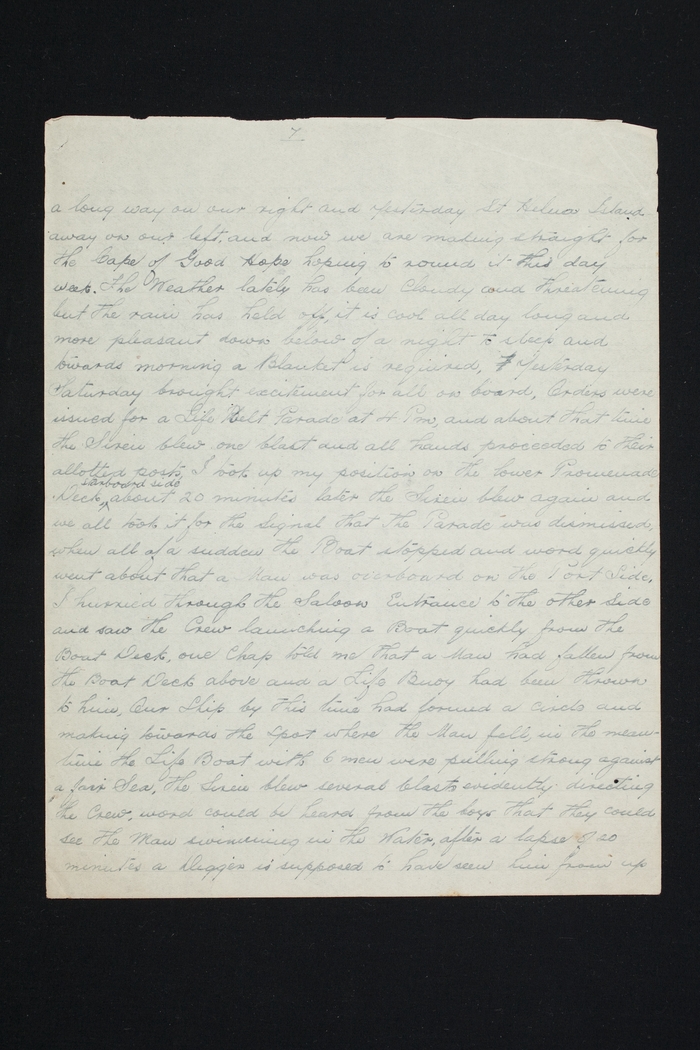 7
a long way on our right and yesterday St Helena Island
away on our left, and now we are making straight for
the Cape of Good Hope hoping to round it this day
week. The Weather lately has been cloudy and threatening
but the rain has held off, it is cool all day long and
more pleasant down below of a night to sleep and
towards morning a Blanket is required, Yesterday
Saturday brought excitement for all on board, Orders were
issued for a Life Belt Parade at 4 Pm, and about that time
the Siren blew one blast and all hands proceeded to their
allotted posts, I took up my position on the lower Promenade
starboard side
Deck, about 20 minutes later the Siren blew again and
we all took it for the Signal that the Parade was dismissed,
when all of a sudden the Boat stopped and word quickly
went about that a Man was overboard on the Port Side,
I hurried through the Saloon Entrance to the other side
and saw the Crew launching a Boat quickly from the
Boat Deck, one Chap told me that a Man had fallen from
the Boat Deck above and a Life Buoy had been thrown
to him, Our Ship by this time had formed a circle and
making towards the spot where the Man fell, in the mean-
time the Life Boat with 6 men were pulling strong against
a fair Sea, the Siren blew several blasts evidently directing
the Crew, word could be heard from the boys that they could
see the Man swimming in the Water, after a lapse of 20
minutes a Digger is supposed to have seen him from up